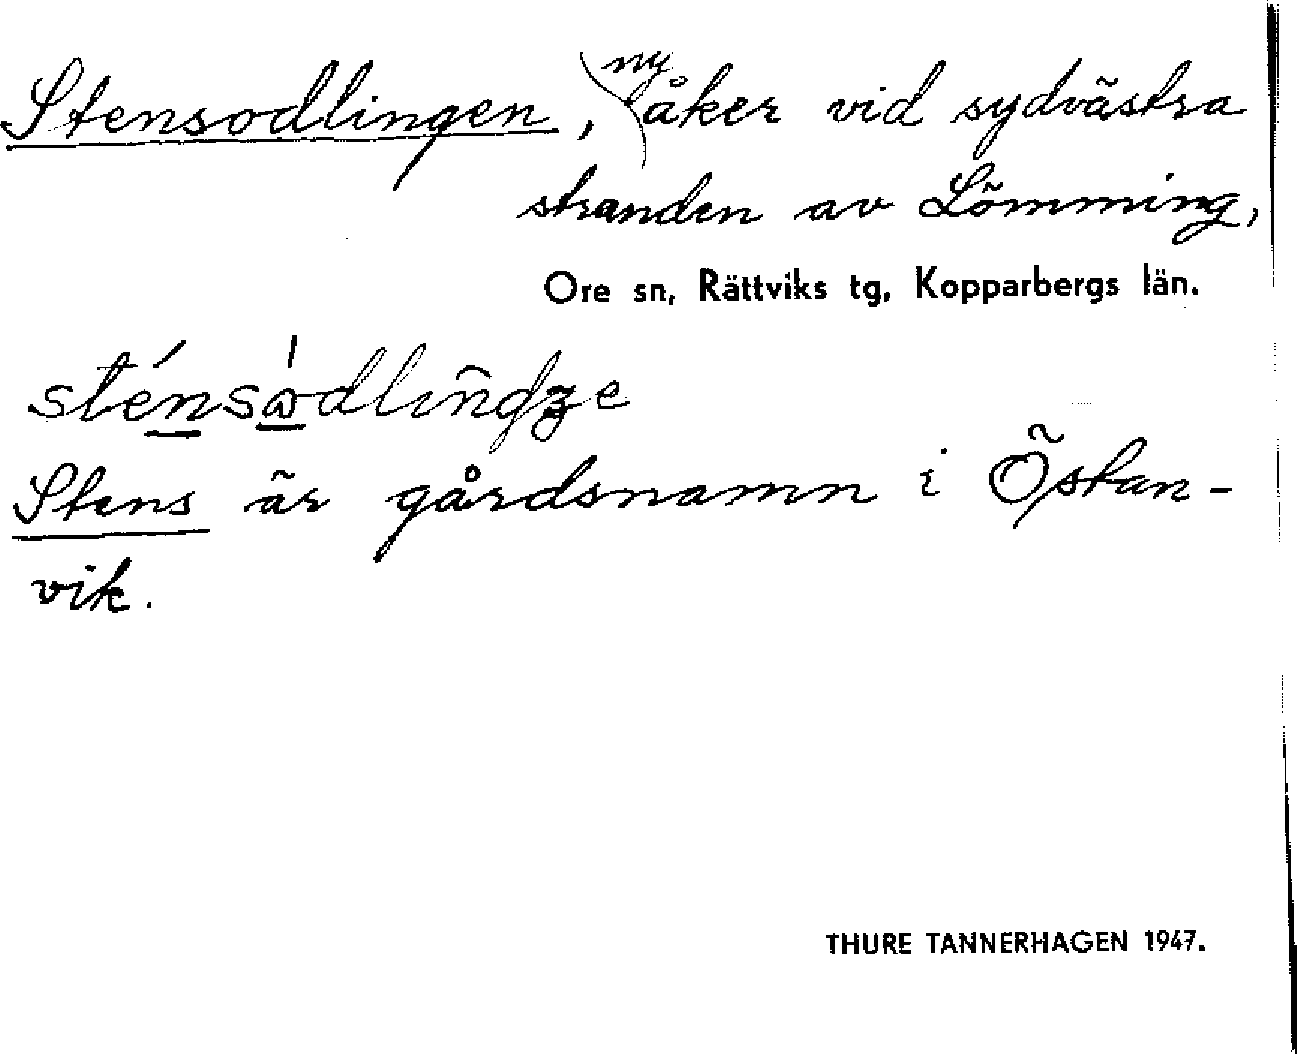 Stensodlingen, nyåker vid sydvästra
stranden av Lömming,
Ore sn, Rättviks tg, Kopparbergs län.
Stens är gårdsnamn i Östan-
vik.
THURE TANNERHAGEN 1947.